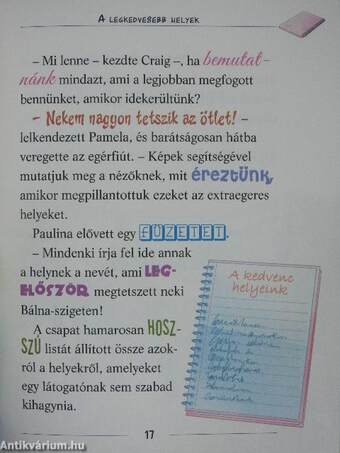 A LEGKEDVESEBB HELYEK
– Mi lenne – kezdte Craig –, ha bemutat-
nánk mindazt, ami a legjobban megfogott
bennünket, amikor idekerültünk?
– Nekem nagyon tetszik az ötlet! –
lelkendezett Pamela, és barátságosan hátba
veregette az egérfiút. – Képek segítségével
mutatjuk meg a nézőknek, mit éreztünk,
amikor megpillantottuk ezeket az extraegeres
helyeket.
Paulina elővett egy FÜZETET.
– Mindenki írja fel ide annak
a helynek a nevét, ami LEG-
ELŐSZÖR megtetszett neki
Bálna-szigeten!
A csapat hamarosan HOSZ-
SZÚ listát állított össze azok-
ról a helyekről, amelyeket
egy látogatónak sem szabad
kihagynia.
A kedvenc
helyeink
17
antikvárium.hu